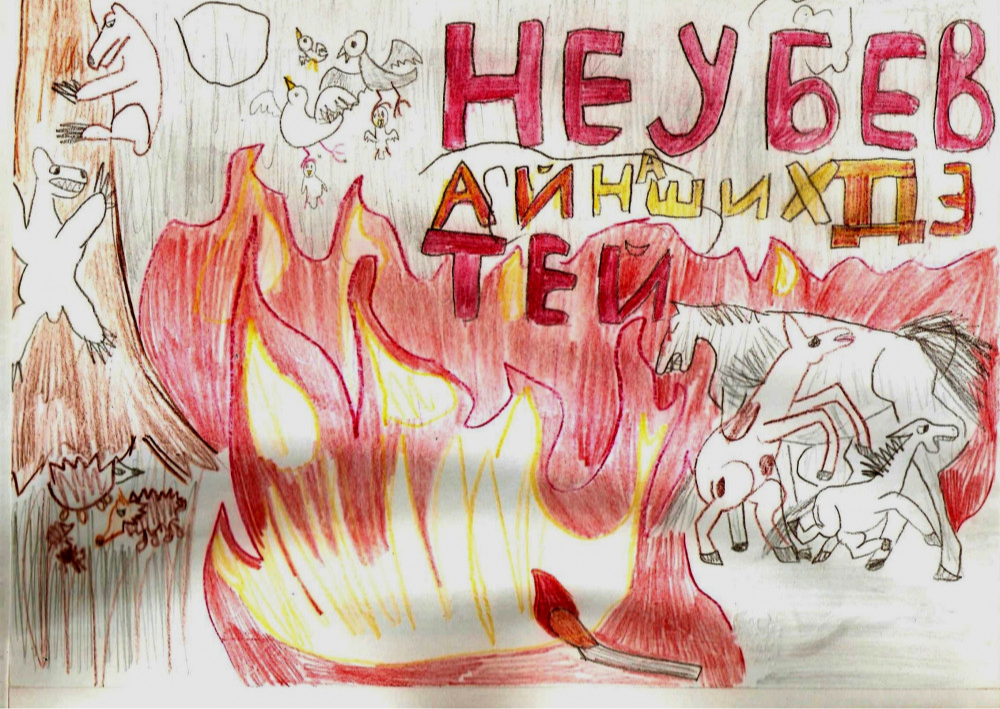 НЕ УБЕВ
АЙ НАШИХ ДЭ
ТЕЙ